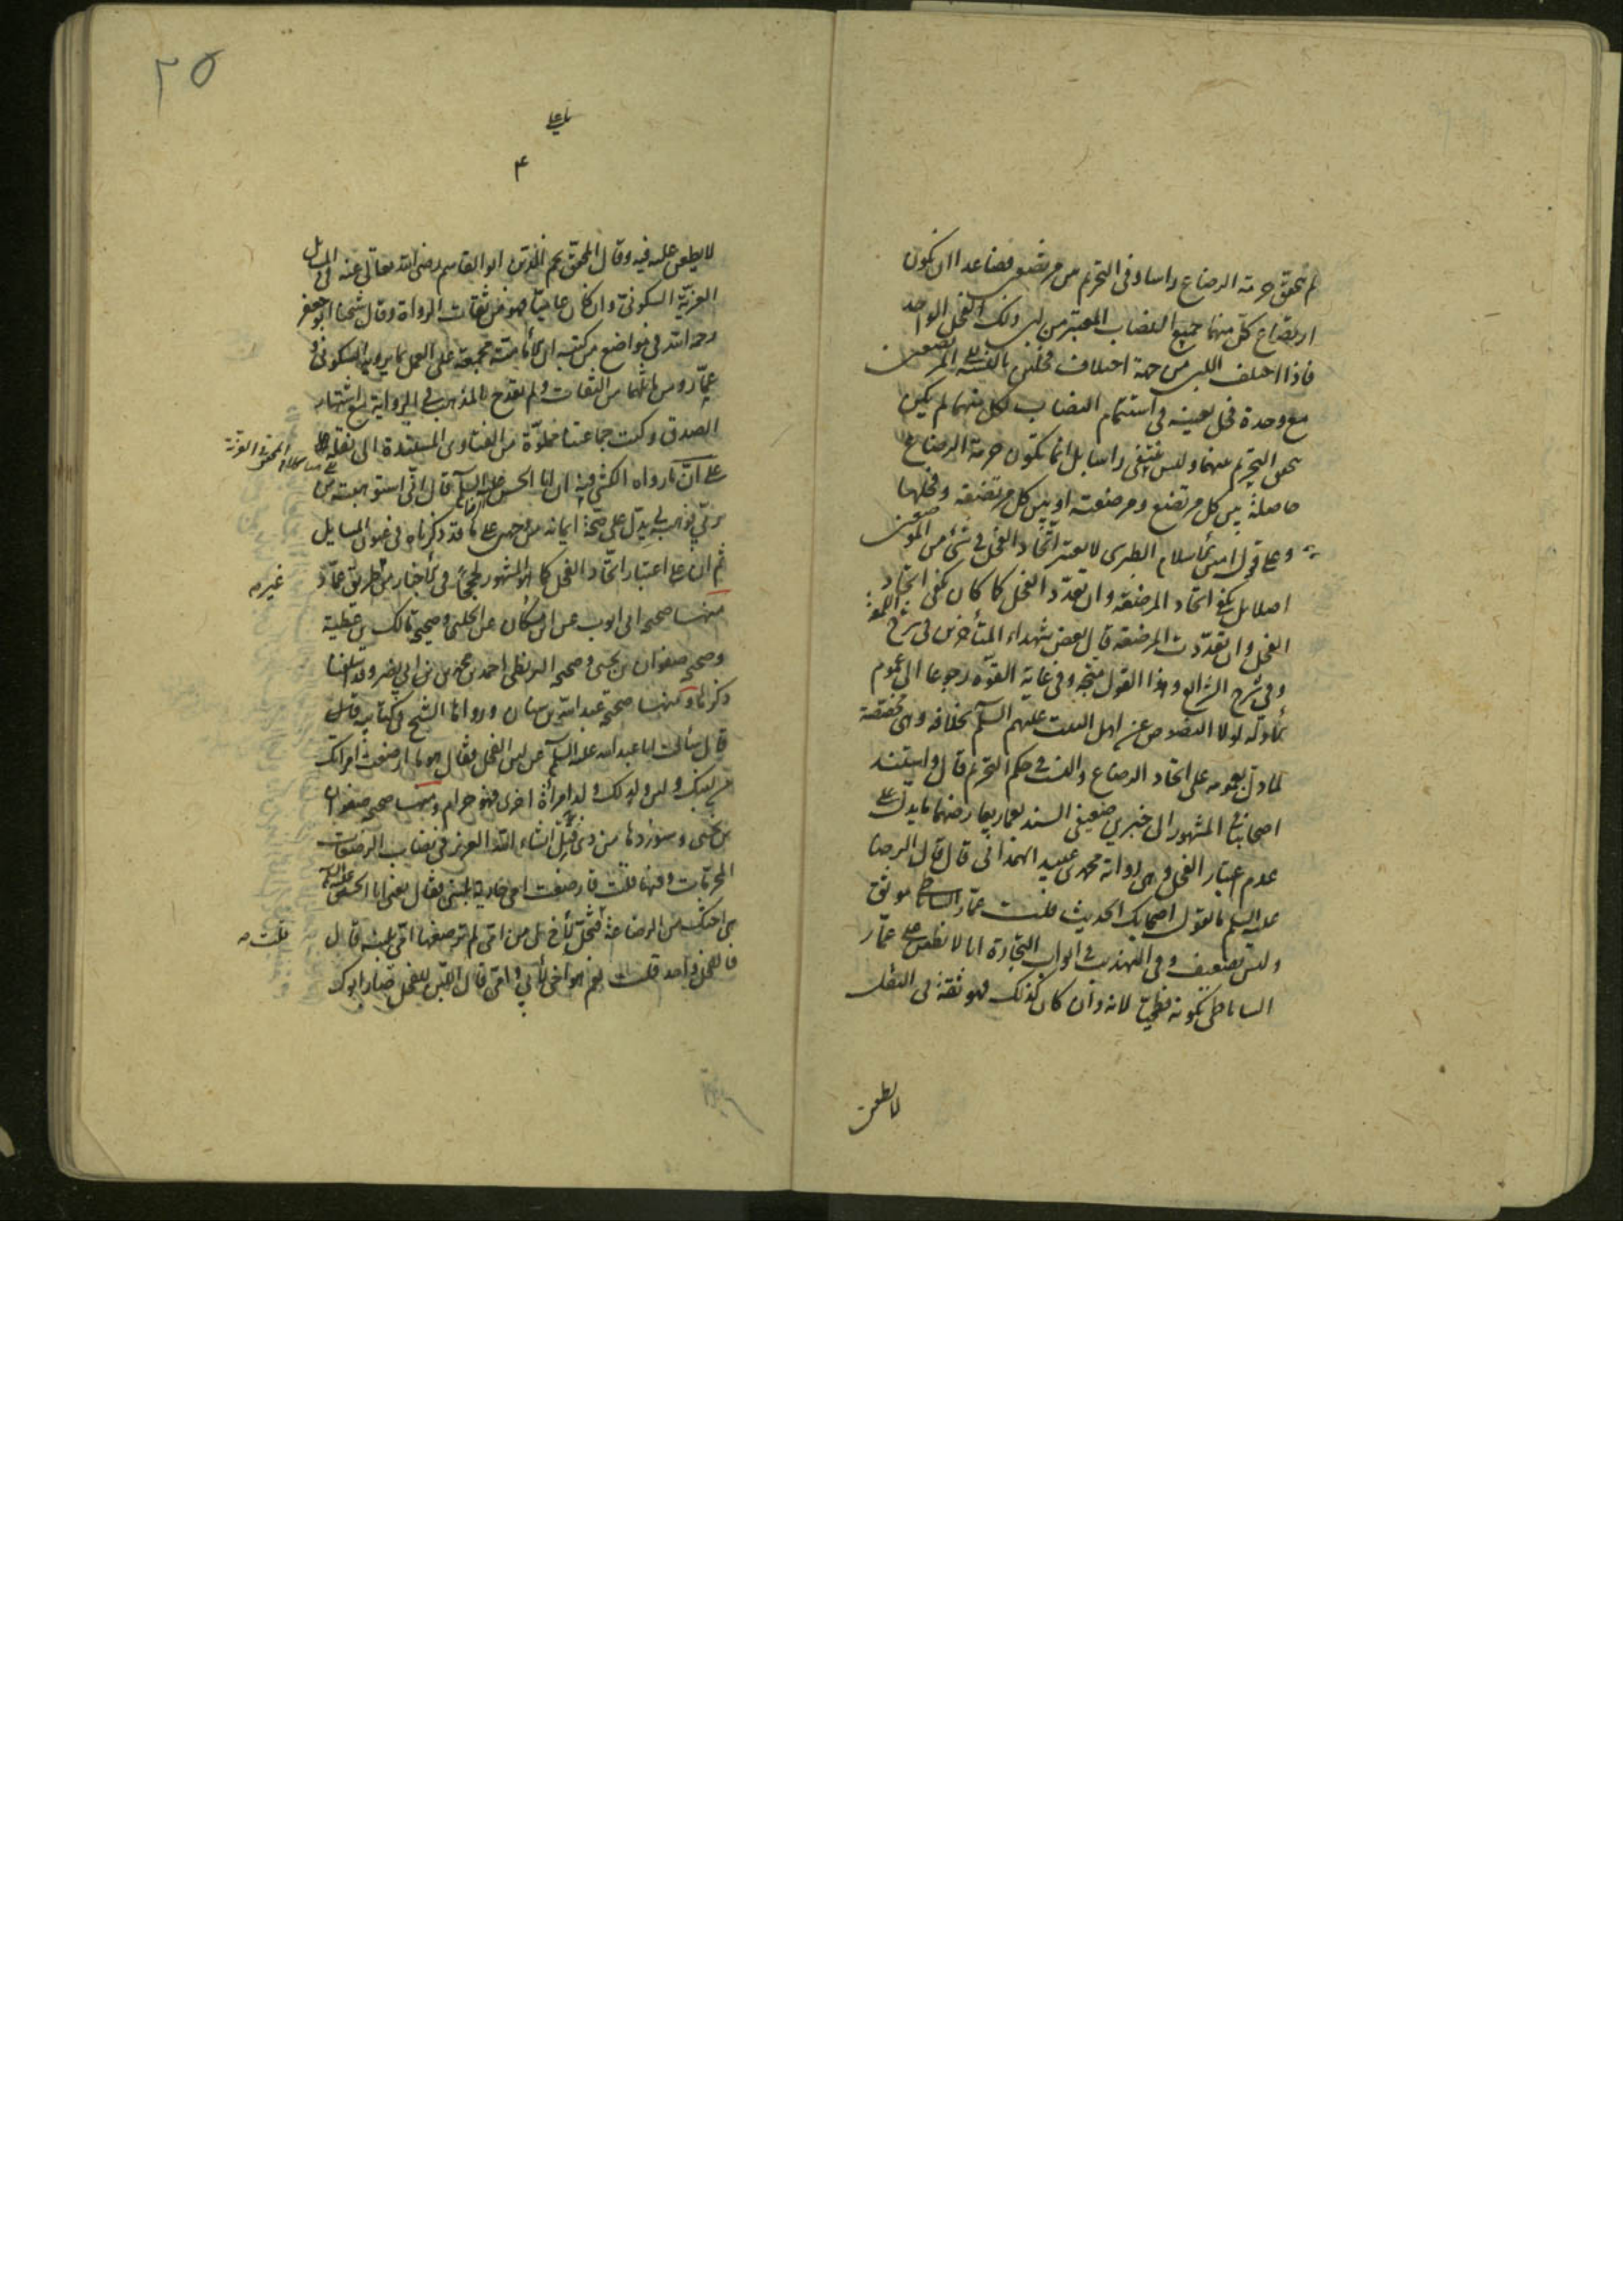 لم يتحقق حرمة الرضاع راسا وفي التحريم بين مرتضعين فصاعدا ان يكون
ارتضاع كل منهما جميع النصاب المعتبر من لبن ذلك الفحل الواحد
فاذا اختلف اللبن من جهة اختلاف فحلين بالنسبة الى المرتضعين
مع وحدة فحل بعينه في استتمام النصاب لكل منهما لم يكن
تحقق التحريم بينهما وليس ينتفى راسا بل انما تكون حرمة الرضاع
حاصلة بين كل مرتضع ومرضعته او بين كل مرتضعة وفحلها
وعلى قول امين الاسلام الطبرسي لا يعتبر اتحاد الفحل في شئ من الموضعين
اصلا بل يكفي اتحاد المرضعة وان تعدد الفحل كما كان يكفي اتحاد
الفحل وان تعددت المرضعة قال بعض شهداء المتأخرين في شرح اللمعة
وفي شرح الشرايع وهذا القول متجه وفي غاية القوة رجوعا الى عموم
الادلة لولا النصوص عن اهل البيت عليهم السلم بخلافه وهي مخصصة
لما دل بعمومه على اتحاد الرضاع والنسب في حكم التحريم قال واستند
اصحابنا في المشهور الى خبرين ضعيفي السند بعمار يعارضهما ما يدل على
عدم اعتبار الفحل وهي رواية محمد بن عبيد الهمداني قال قال الرضا
عليه السلم ما يقول اصحابك الحديث قلت عمار الساباطي موثق
وليس بضعيف وفي التهذيب في ابواب التجارة انا لا نطعن على عمار
الساباطي بكونه فطحيا لانه وان كان كذلك فهو ثقة في النقل
لا يطعن
٢٥
يا علي
٤
لا يطعن عليه فيه وقال المحقق نجم الدين ابو القاسم رضي الله تعالى عنه في المسائل
العزية السكوني وان كان عاميا فهو من ثقات الرواة وقال شيخنا ابو جعفر
رحمه الله في مواضع من كتبه ان الامامية مجمعة على العمل بما يرويه السكوني و
عمار ومن ماثلهما من الثقات ولم يقدح بالمذهب في الرواية مع اشتهار
الصدق وكتب جماعتنا مملوة من الفتاوى المستندة الى نقله
على ان ما رواه الكشي فيه ان ابا الحسن عليه السلم قال اني استوهبته من
ربي فوهبه لي يدل على صحة ايمانه على ما قد ذكرناه في عيون المسايل
ثم ان على اعتبار اتحاد الفحل كما هو المشهور اخبار من طريق عمار
غيره
منها صحيحة ابي ايوب عن ابن مسكان عن الحلبي وصحيحة مالك بن عطية
وصحيحة صفوان بن يحيى وصحيحة البزنطي احمد بن محمد بن ابي نصر وقد اسلفنا
ذكرها ومنها صحيحة عبد الله بن سنان ورواها الشيخ في كتابيه
قال سألت ابا عبد الله عليه السلم عن لبن الفحل فقال هو ما ارضعت امرأتك
من لبنك ولبن ولدك ولد امرأة اخرى فهو حرام ومنها صحيحة صفوان
بن يحيى وسنوردها من ذي قبل انشاء الله العزيز في نصاب الرضعات
المحرمات وفيها قلت فارضعت امي جارية بلبني فقال يعني ابا الحسن عليه السلم
هي اختك من الرضاعة قلت فتحل لأخ لي من امي لم ترضعها امي بلبنه قال
فالفحل واحد قلت نعم هو اخي لأبي وامي قال اللبن للفحل صار ابوك